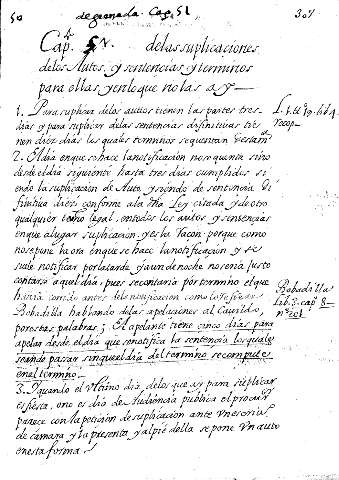 50 de granada. Cap. 51. 307
Cap. 51. de las suplicaciones
de los Autos, y sentencias, y terminos
para ellas, y en lo que no las ay
1. Para suplicar de los autos tienen las partes tres
dias y para suplicar de las sentencias difinitivas tie
nen diez dias los quales terminos se quentan
2. El dia en que se hace la notificacion no se quenta sino
desde el dia siguiente hasta tres dias cumplidos si
endo la suplicacion de Auto, y siendo de sentencia di
finitiva diez conforme a la dha Ley citada y de otro
qualquier tno legal, en todos los autos y sentencias
en que a lugar suplicacion. y es la racon porque como
no se pone la ora en que se hace la notificacion y se
suele notificar por la tarde y aun de noche no seria justo
contarse aquel dia, pues se contaria por termino el que
havia corrido antes de la notificacion como lo refiere
Bobadilla hablando de las apelaciones al Cavildo,
por estas palabras; El apelante tiene cinco dias para
apelar desde el dia que se notifica la sentencia los quales
se an de pasar sin que el dia del termino se compute
en el termino.
3. y quando el ultimo dia de los que ay para suplicar
es fiesta, o no es dia de Audiencia publica el procur.or
parece con la peticion de suplicacion ante un escriv.o
de camara y la presenta, y al pie della se pone un auto
en esta forma.
recop.
Bobadilla
lib. 3. cap. 8
nº 201